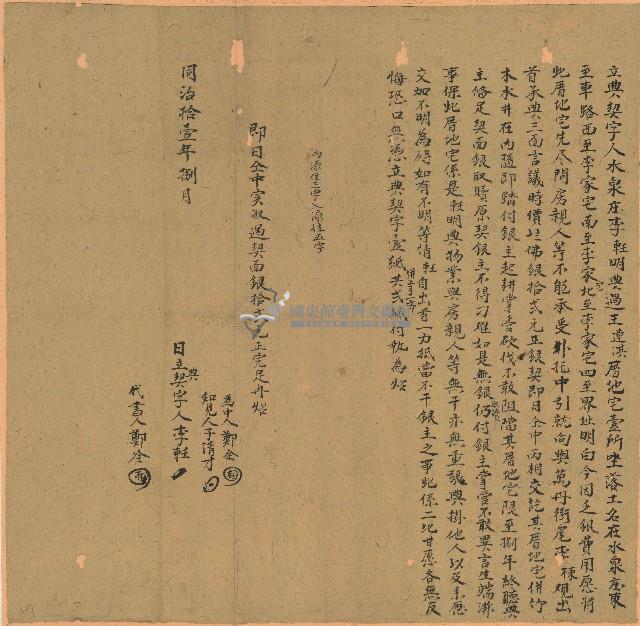 立典契字人水泉庄李輊明典過王連淇厝地宅壹所坐落土名在水泉庄東
至車路西至李家宅南至李家宅北至李家宅四至界址明白今因乏銀費用愿將
此厝地宅先尽問房親人等不能承受外托中引就向與萬丹街尾李棟觀出
首承典三面言議時價佛銀拾弍元正銀契即日仝中兩相交訖其厝地宅併竹
木水井在內隨即踏付銀主起耕掌管砍伐不敢阻擋其厝地宅限至捌年終聽典
主俻足契面銀取贖原契銀主不得刁难如是無銀仍付銀主掌管不敢異言生端滋
事保此厝地宅係是輊明典物業與房親人等無干亦無重張典掛他人以及來歷
交加不明為碍如有不明等情輊自出首一力抵當不干銀主之事此係二比甘愿各無反
悔恐口無憑立典契字壹紙付執為炤
內添住三字又添住五字
即日仝中实収過契面銀拾弍元正完足再炤
同治拾壹年捌月
為中人鄭全
知見人于清才
日立典契字人李輊
代書人鄭全
國史館臺灣文獻館
TAIWAN HISTORICA